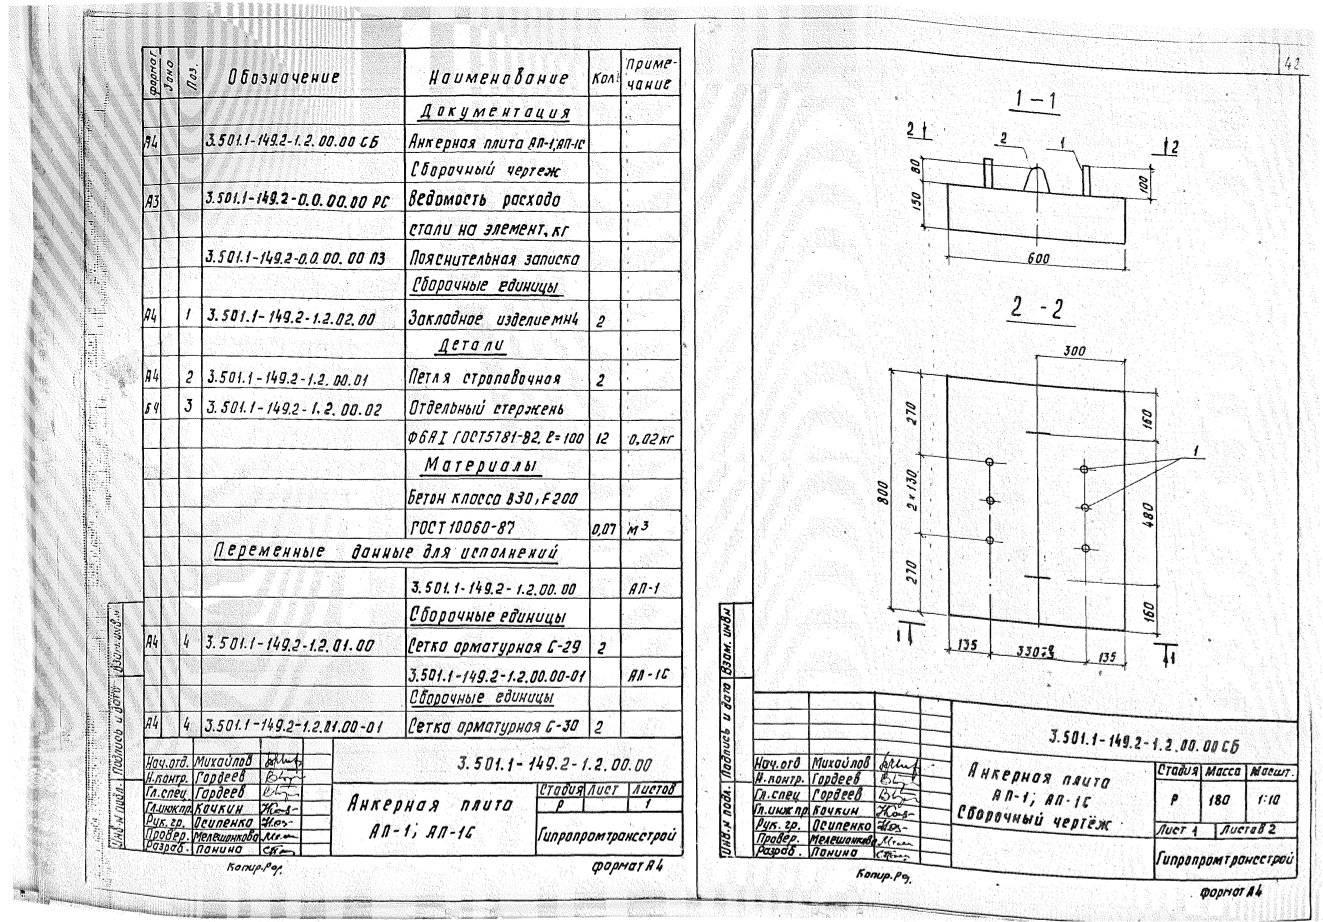 формат
Зона
Поз.
Обозначение
Наименование
Кол.
Приме-
чание
Документация
А4 3.501.1-149.2-1.2.00.00 СБ Анкерная плита АП-1; АП-1С
Сборочный чертеж
А3 3.501.1-149.2-0.0.00.00 РС Ведомость расхода
стали на элемент, кг
3.501.1-149.2-0.0.00.00 ПЗ Пояснительная записка
Сборочные единицы
А4 1 3.501.1-149.2-1.2.02.00 Закладное изделие МН4 2
Детали
А4 2 3.501.1-149.2-1.2.00.01 Петля строповочная 2
Б4 3 3.501.1-149.2-1.2.00.02 Отдельный стержень
Ф6АI ГОСТ5781-82, ℓ=100 12 0,02кг
Материалы
Бетон класса В30, F200
ГОСТ 10060-87 0,07 м³
Переменные данные для исполнений
3.501.1-149.2-1.2.00.00 АП-1
Сборочные единицы
А4 4 3.501.1-149.2-1.2.01.00 Сетка арматурная С-29 2
3.501.1-149.2-1.2.00.00-01 АП-1С
Сборочные единицы
А4 4 3.501.1-149.2-1.2.01.00-01 Сетка арматурная С-30 2
Инв.№ подл. Подпись и дата Взам.инв.№
Нач.отд. Михайлов
Н.контр. Гордеев
Гл.спец. Гордеев
Гл.инж.пр. Кочкин
Рук. гр. Осипенко
Провер. Мелешонкова
Разраб. Панина
3.501.1-149.2-1.2.00.00
Анкерная плита
АП-1; АП-1С
Стадия Лист Листов
Р 1
Гипропромтрансстрой
Копир.
формат А4
42
1-1
2 2 1 2
80
150
100
600
2-2
300
270
160
800
2×130
1
480
270
160
1 1
135 135
Инв.№ подл. Подпись и дата Взам. инв№
3.501.1-149.2-1.2.00.00СБ
Нач.отд Михайлов
Н.контр. Гордеев
Гл.спец Гордеев
Гл.инж.пр. Кочкин
Рук. гр. Осипенко
Провер. Мелешонкова
Разраб. Панина
Анкерная плита
АП-1; АП-1С
Сборочный чертёж
Стадия Масса Масшт.
Р 180 1:10
Лист 1 Листов 2
Гипропромтрансстрой
Копир.
формат А4